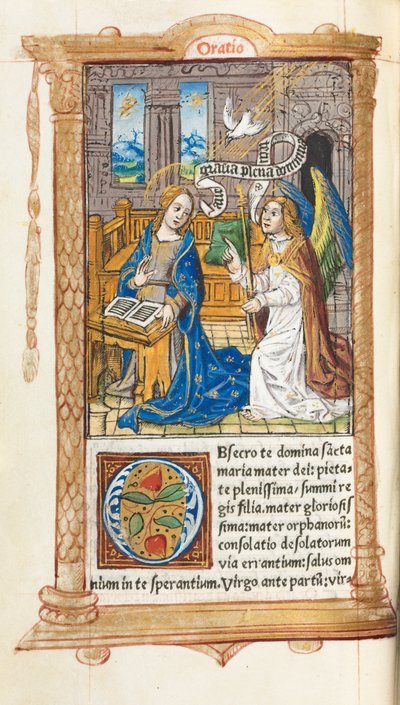 Oratio
aue gracia plena
OBsecro te domina sācta
maria mater dei: pieta-
te plenissima/ summi re
gis filia. mater gloriosis
sima: mater orphanorū:
consolatio desolatorum
via errantium: salus om
nium in te sperantium. Virgo ante partū: vira